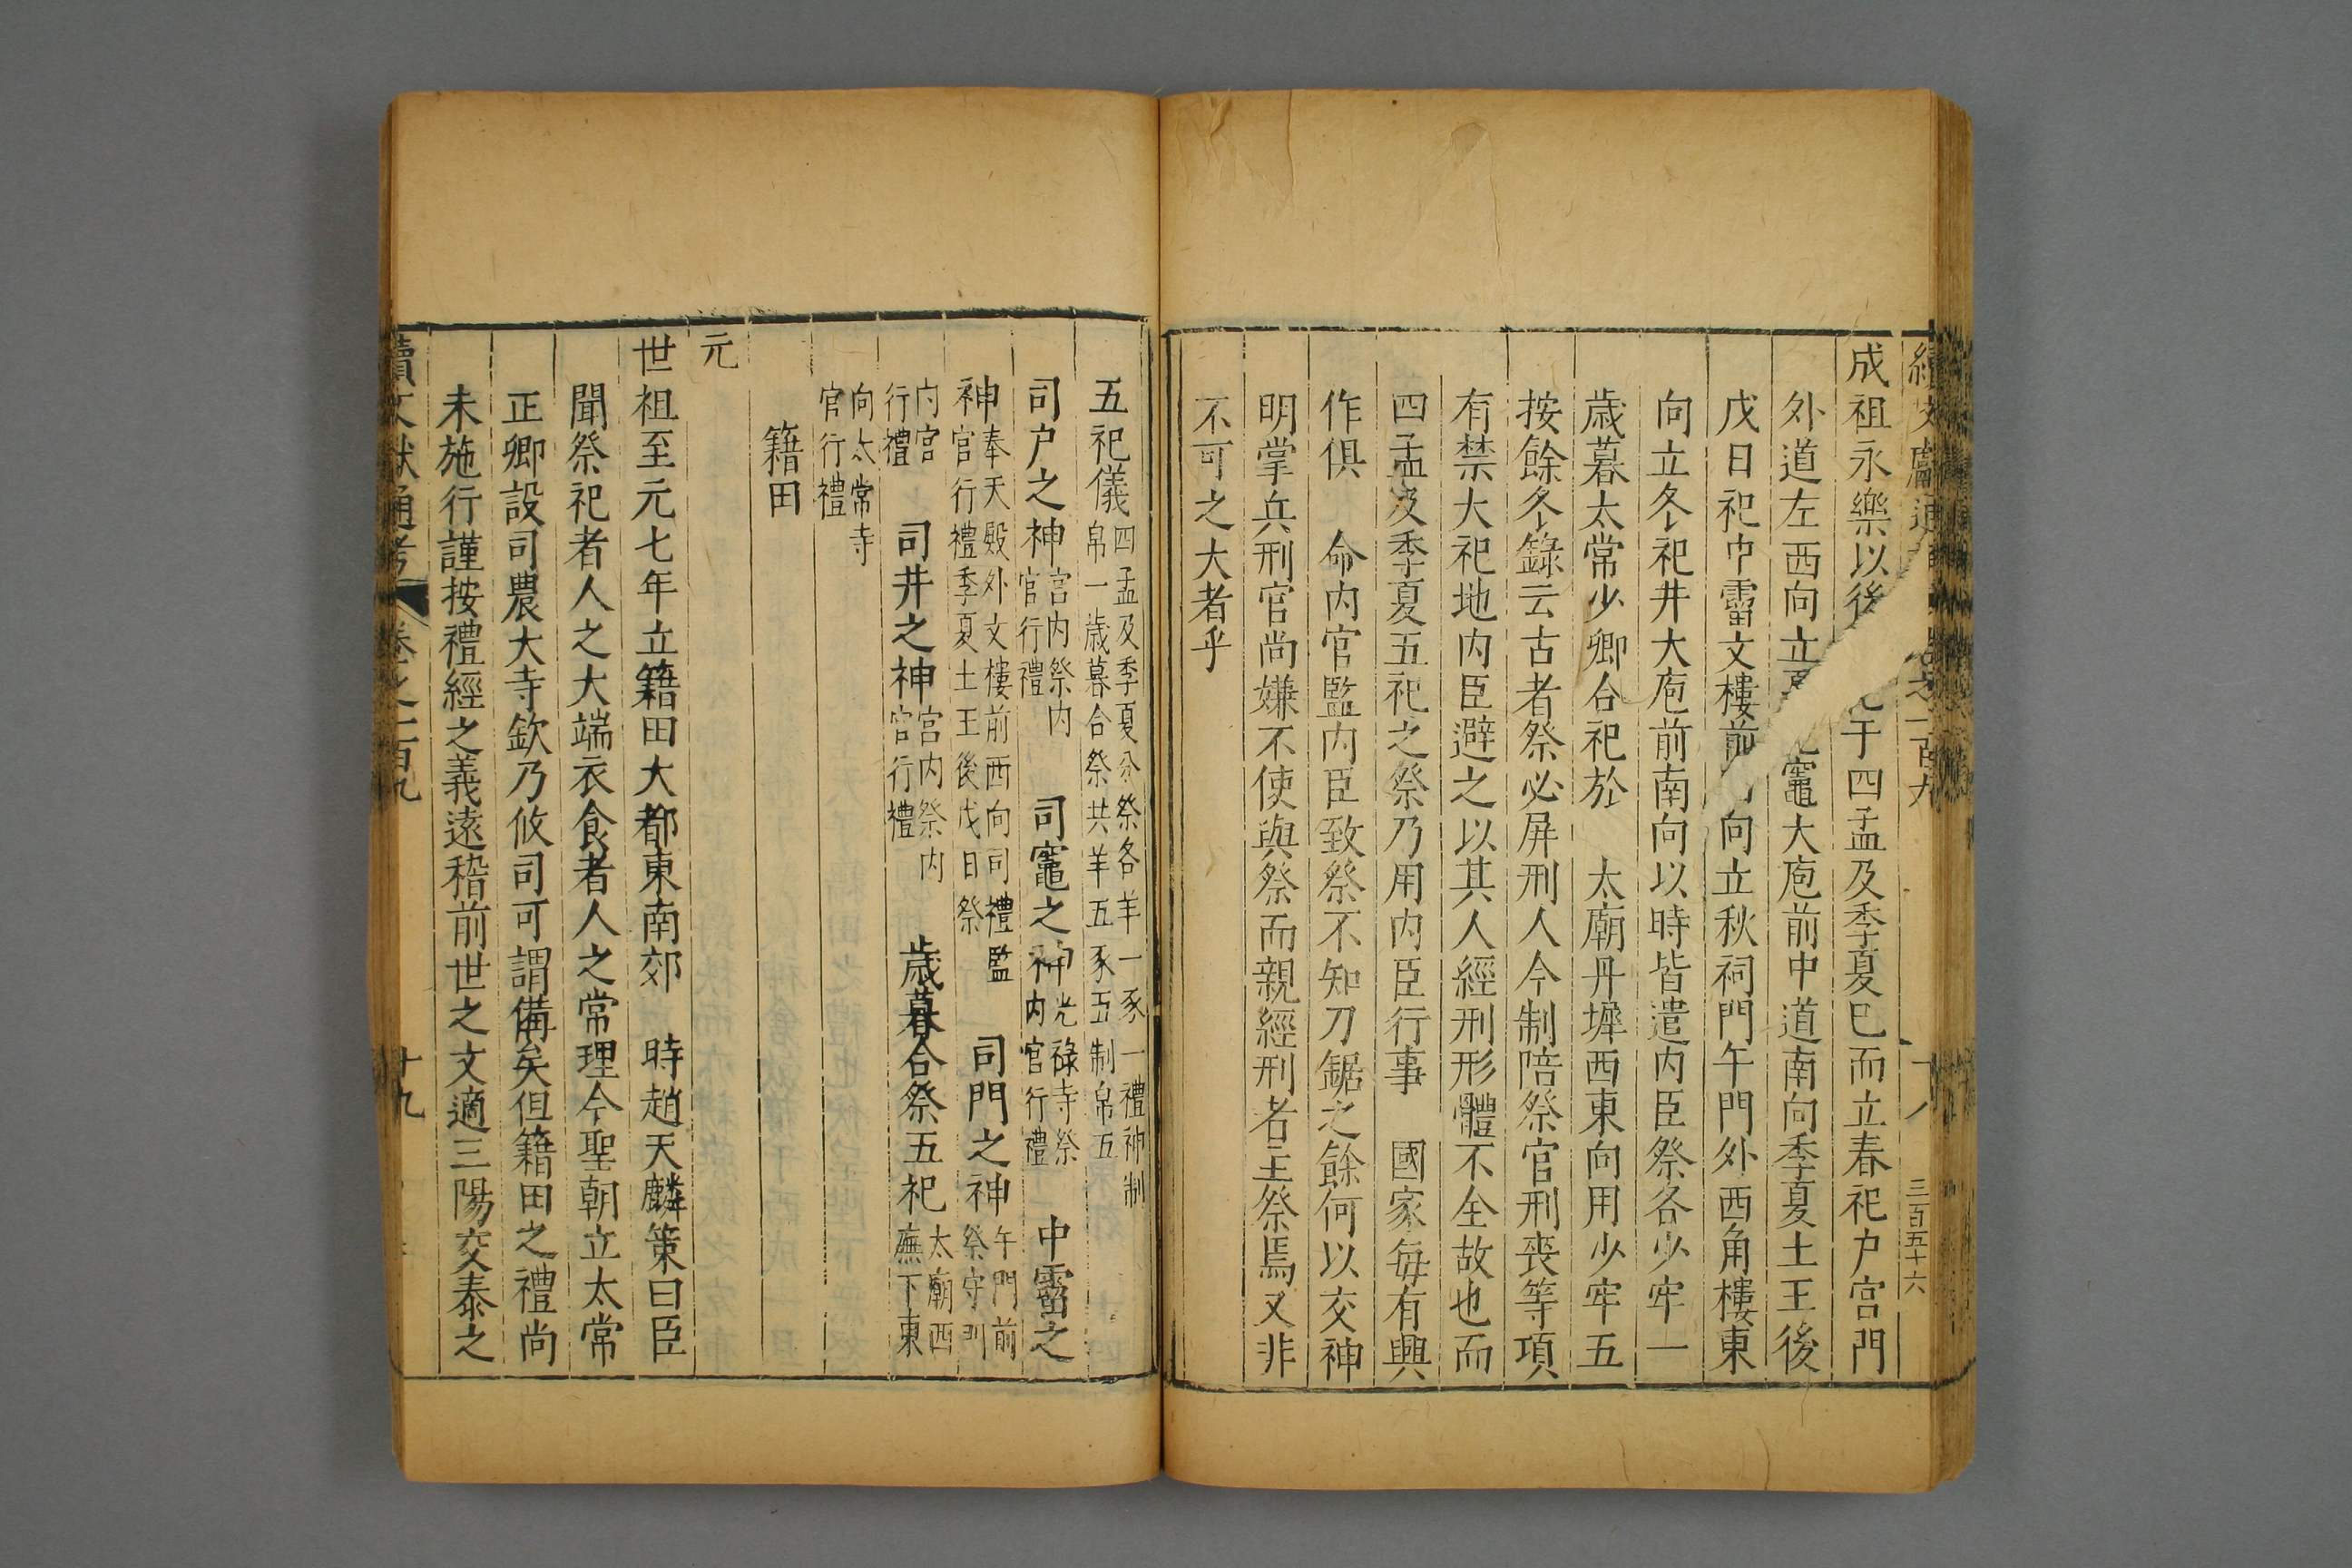 續文獻通 卷之一百九 三百五十六
成祖永樂以後 于四孟及季夏巳而立春祀户宫門
外道左西向立 竈大庖前中道南向季夏土王後
戊日祀中霤文樓前 向立秋祠門午門外西角樓東
向立冬祀井大庖前南向以時皆遣内臣祭各少牢一
歳暮太常少卿合祀於 太廟丹墀西東向用少牢五
按餘冬錄云古者祭必屏刑人今制陪祭官刑喪等項
有禁大祀地内臣避之以其人經刑形體不全故也而
四孟及季夏五祀之祭乃用内臣行事 國家每有興
作俱 命内官監内臣致祭不知刀鋸之餘何以交神
明掌兵刑官尚嫌不使與祭而親經刑者主祭焉又非
不可之大者乎
五祀儀四孟及季夏分祭各羊一豕一禮神制帛一歳暮合祭共羊五豕五制帛五
司户之神宫内祭内官行禮 司竈之神光祿寺祭内官行禮 中霤之
神奉天殿外文樓前西向司禮監官行禮季夏土王後戊日祭 司門之神午門前祭守門
内宫行禮 司井之神宫内祭内官行禮 歳暮合祭五祀太廟西廡下東
向太常寺官行禮
籍田
元
世祖至元七年立籍田大都東南郊 時趙天麟策曰臣
聞祭祀者人之大端衣食者人之常理今聖朝立太常
正卿設司農大寺欽乃攸司可謂備矣但籍田之禮尚
未施行謹按禮經之義遠稽前世之文適三陽交泰之
續文獻通考 卷之一百九 十九